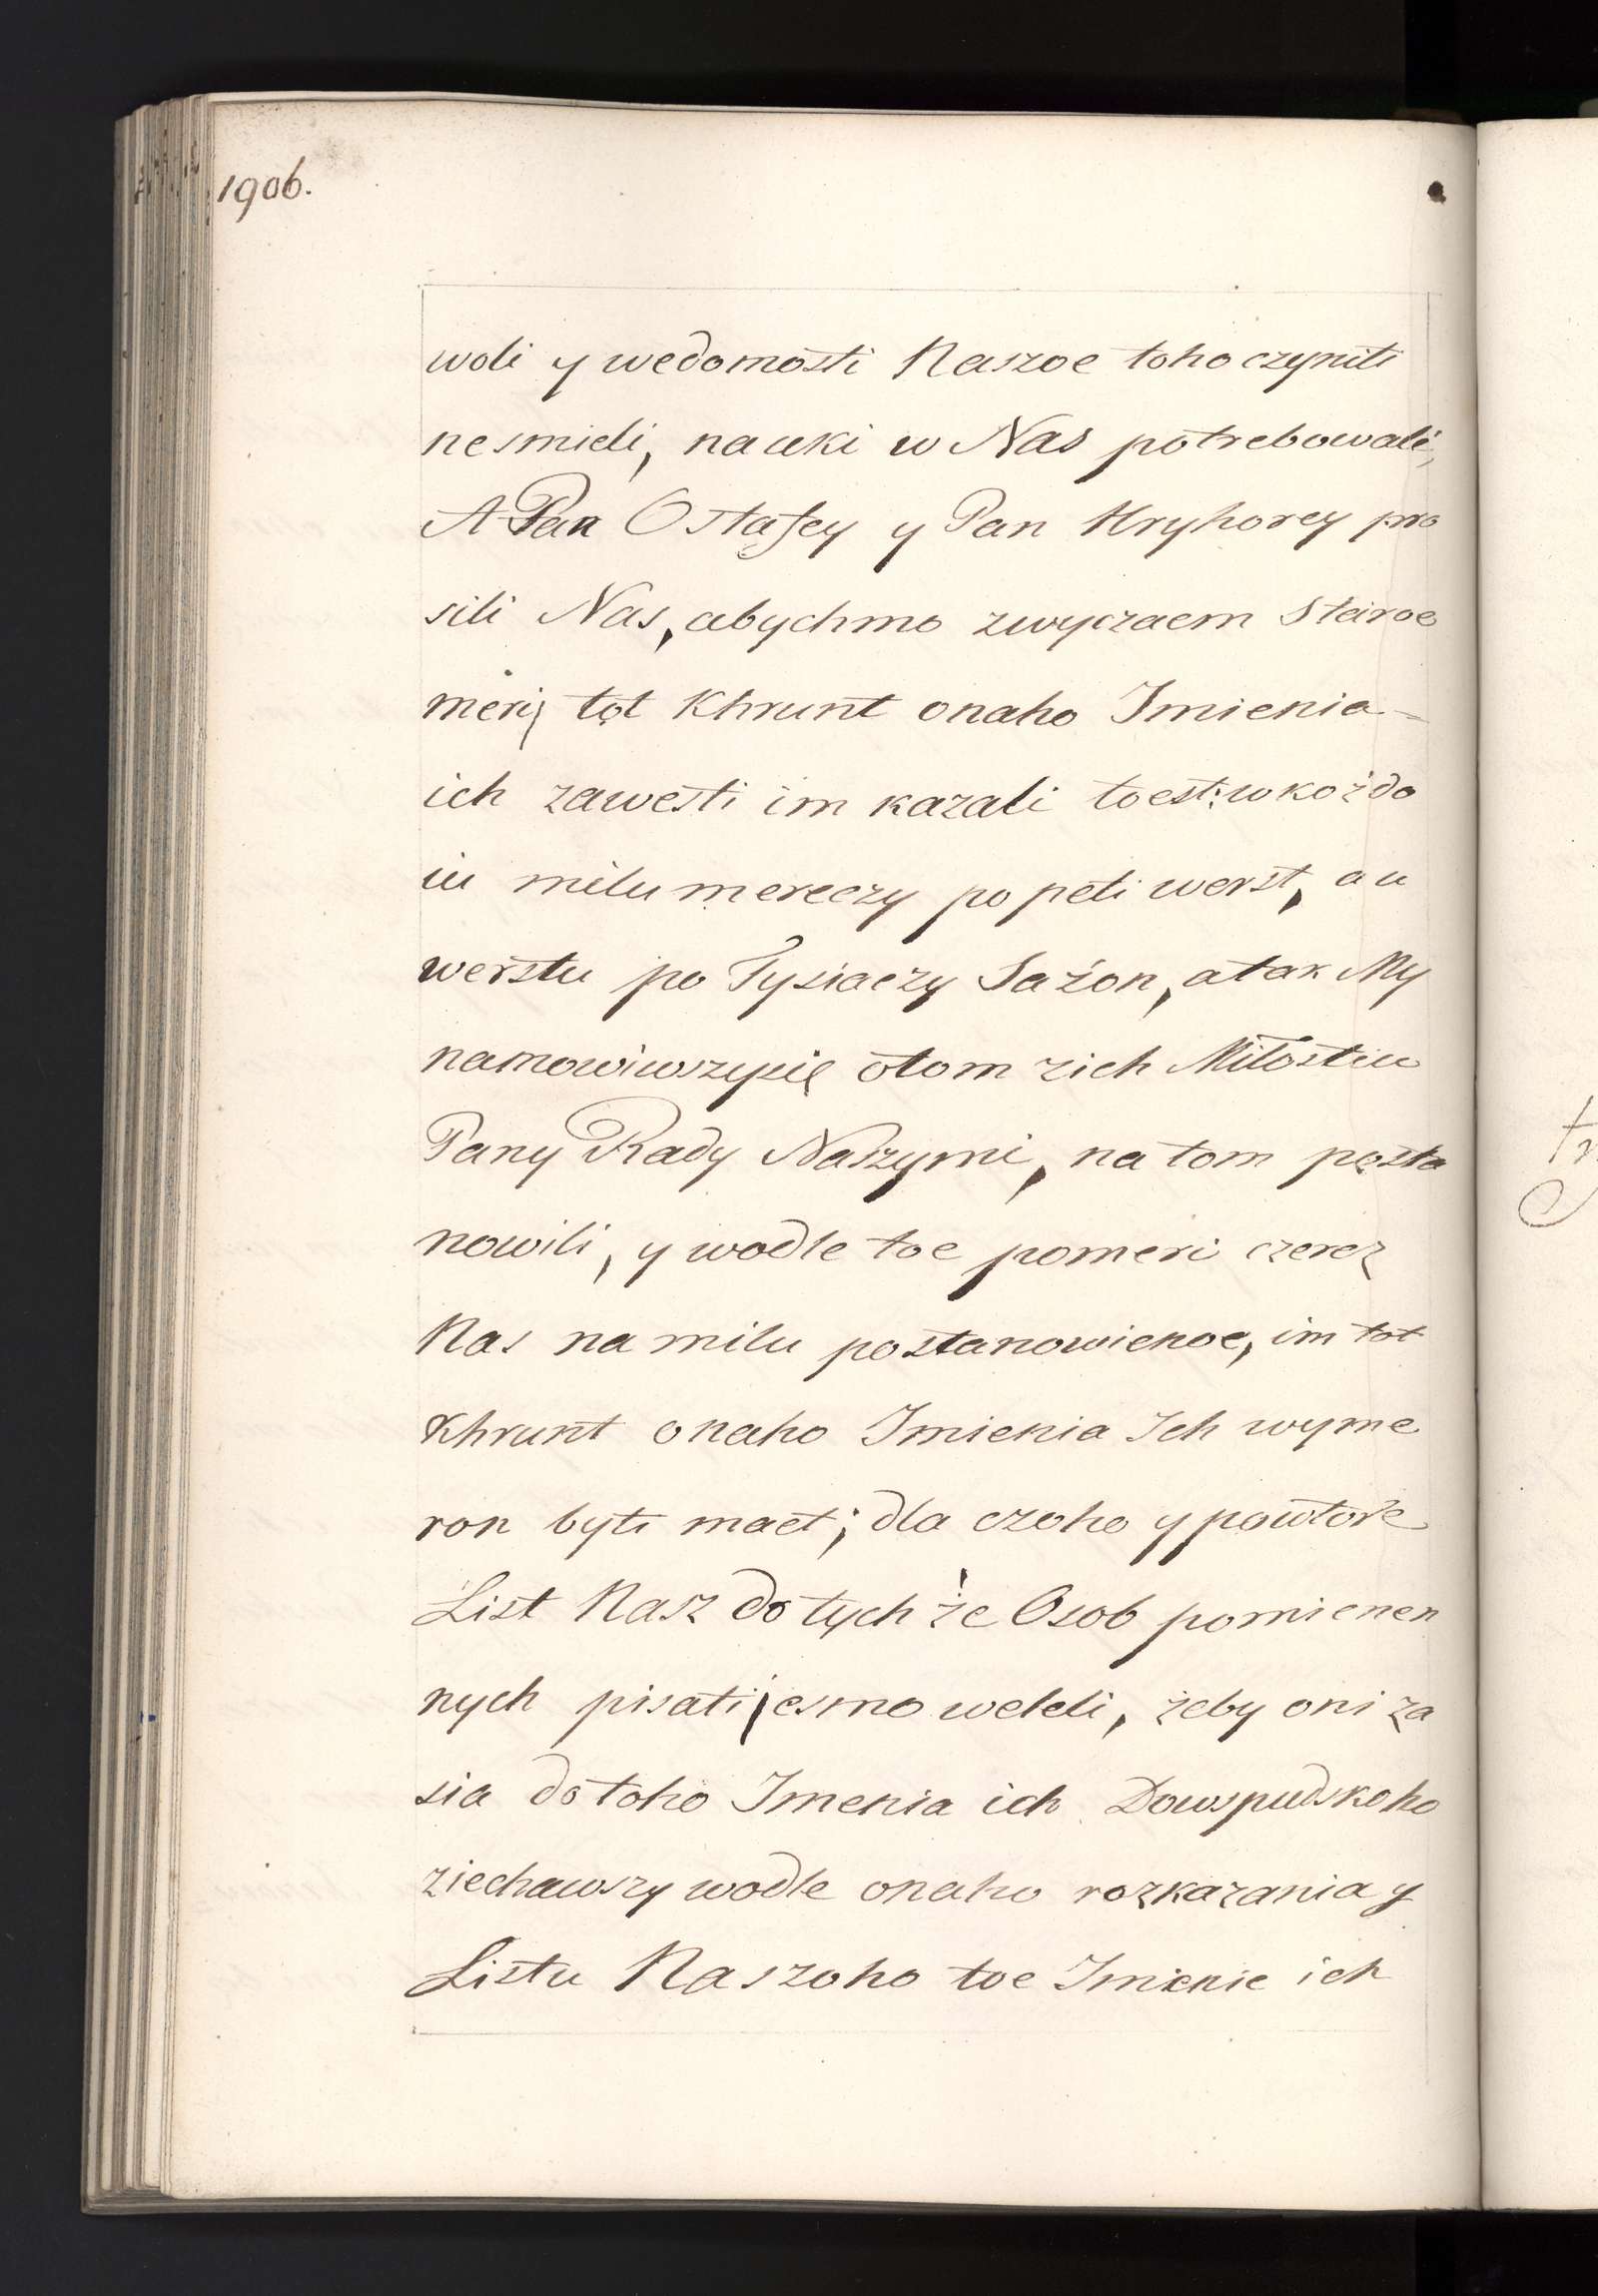 1906.
woli y wedomosti Naszoe toho czyniti
nesmieli, nauki w Nas potrebowali,
A Pan Ostafey y Pan Hryhorey pro
sili Nas, abychmo zwyczaem Staroe
meri, tot Khrunt onaho Imienia =
ich zawesti im kazali toest: w kożdo
iu milu mereczy po peti werst, a u
werstu po Tysiaczy Sażon, a tak My
namowiwszysię otom zich Miłostiu
Pany Rady Naszymi, na tom posta
nowili, y wodle toe pomeri czerez
Nas na milu postanowienoe, im tot
Khrunt onaho Imienia Ich wyme
ron byti maet; dla czoho y powtore
List Nasz do tych że Osob pomienen
nych pisati jesmo weleli, żeby oni za
sia do toho Imenia ich Dowspudskoho
ziechawszy wodle onaho rozkazania y
Listu Naszoho toe Imienie ich